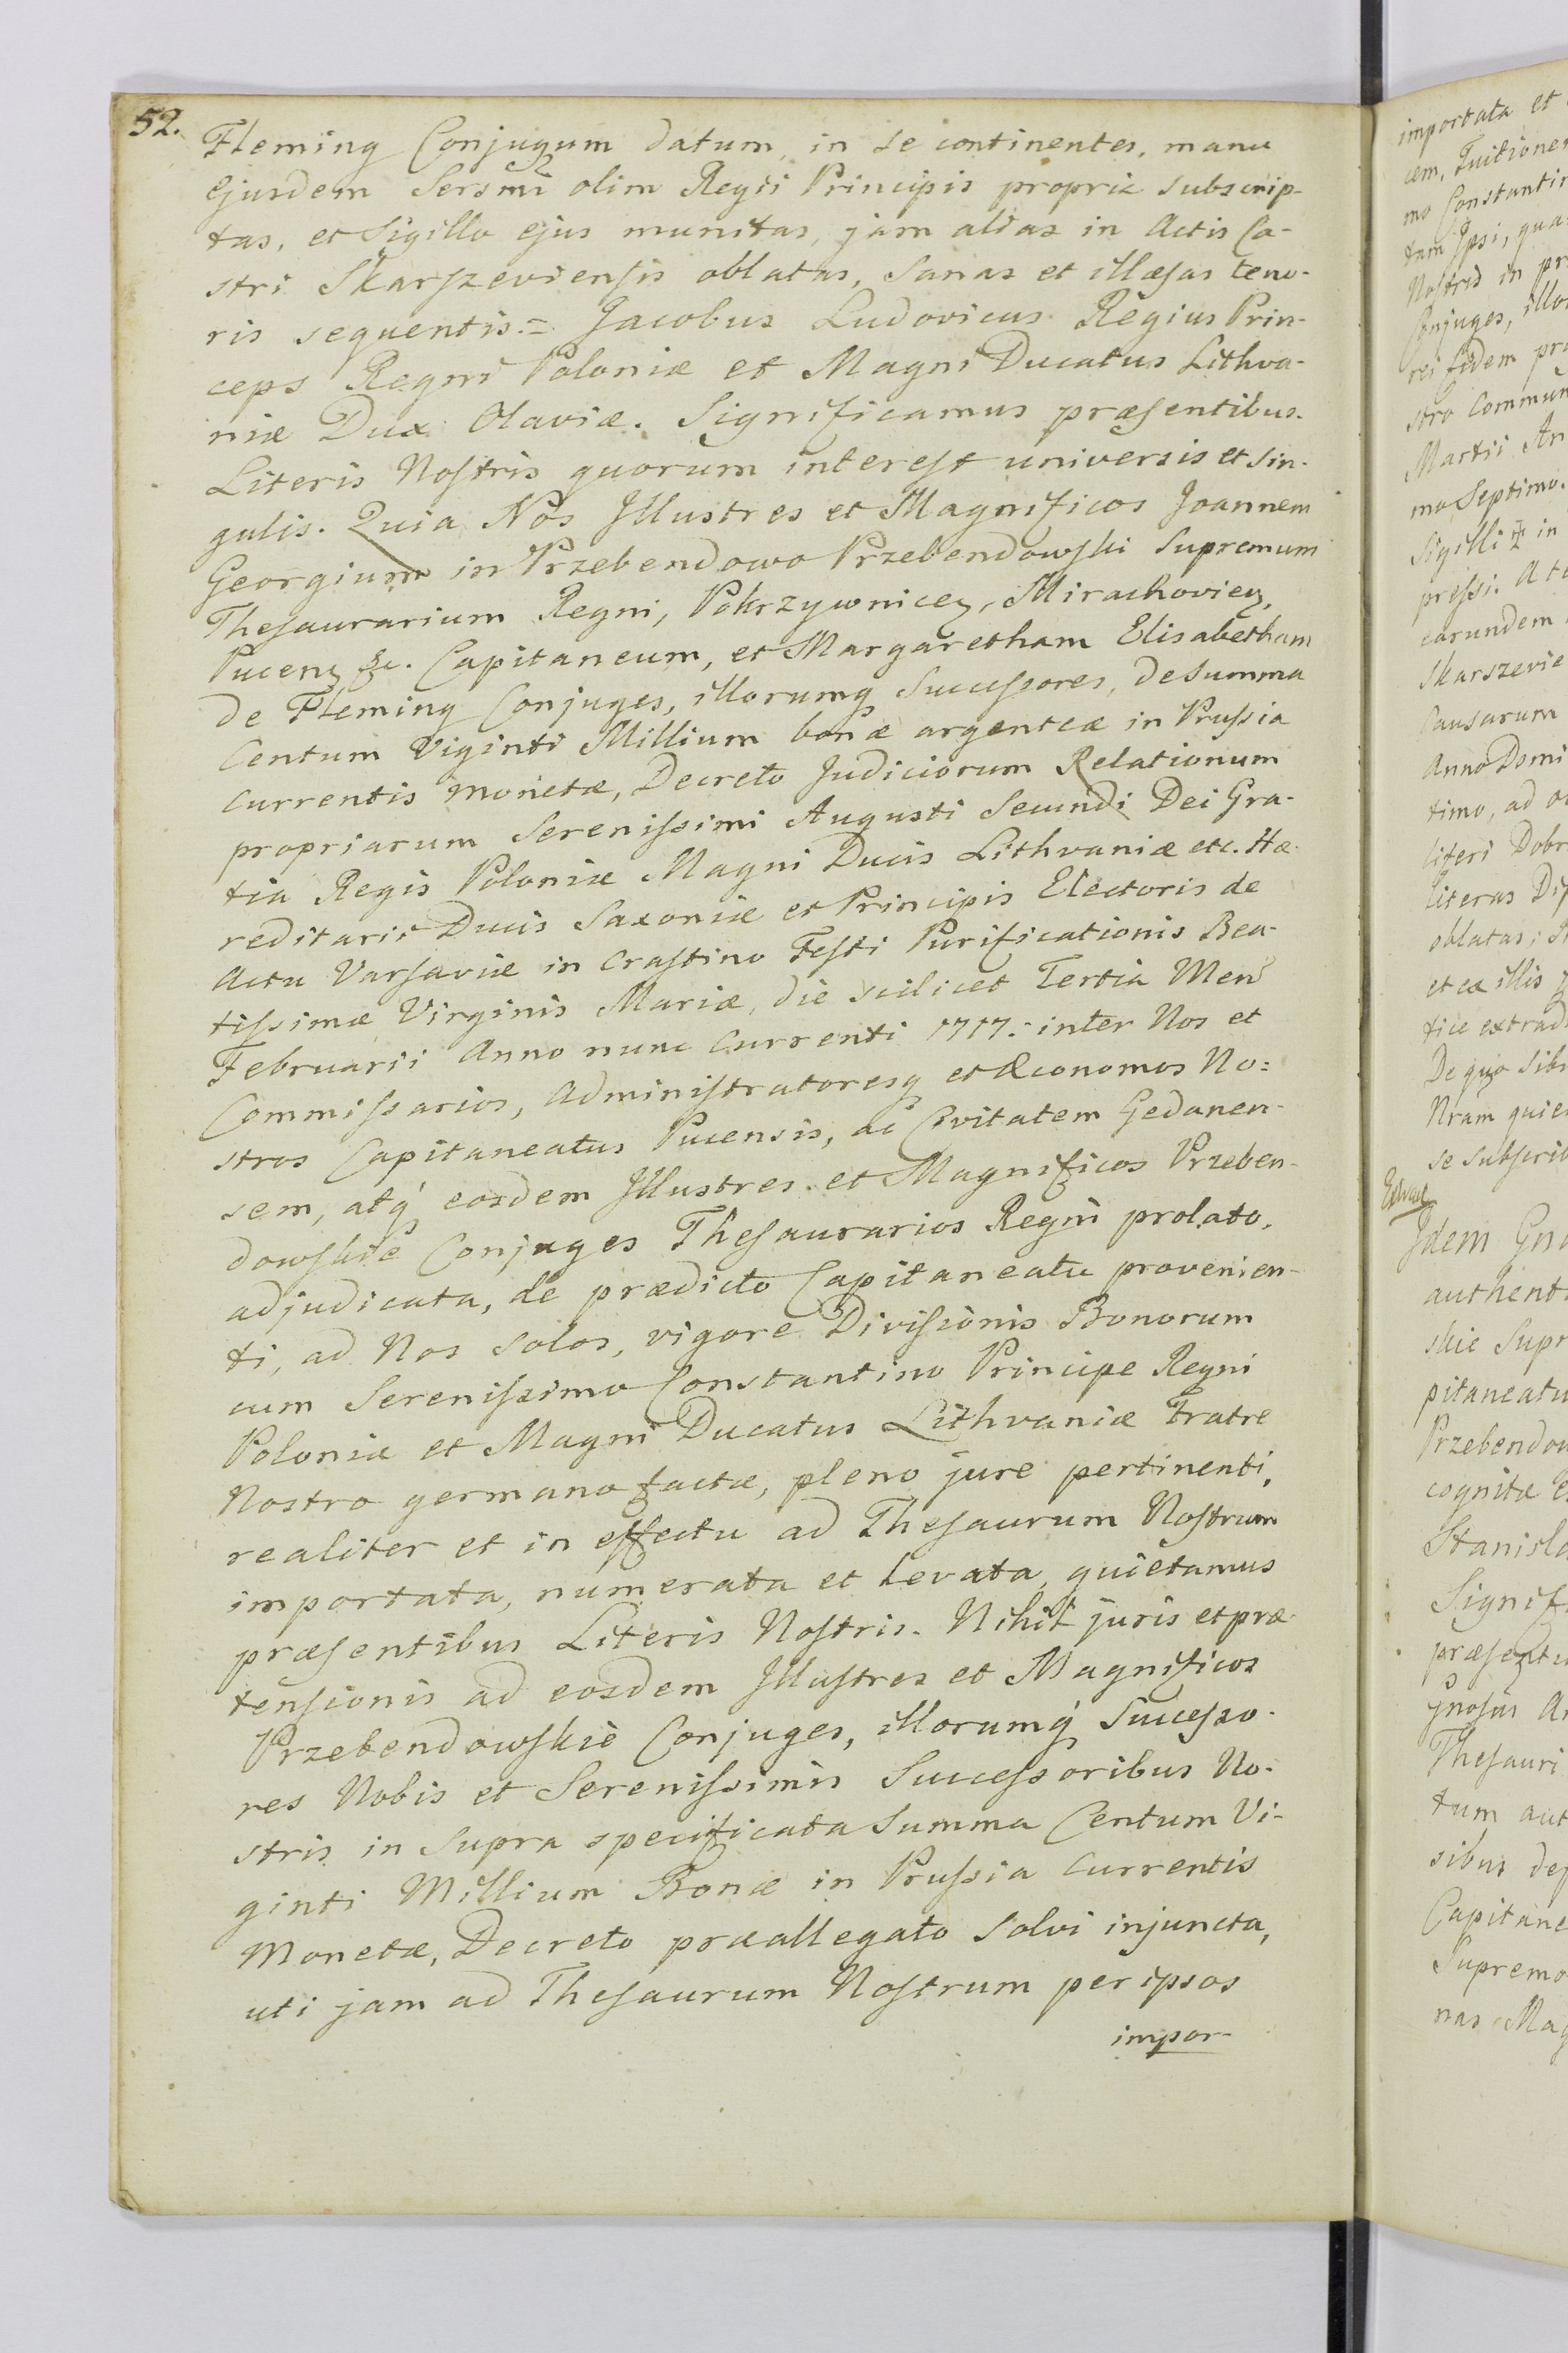 52.
Fleming Conjugum datum, in se continentes, manu
Ejusdem Sersmi olim Regii Principis propria subscrip-
tas, et Sigillo ejus munitas, jam alias in Actis Ca-
stri Skarszeviensis oblatas, sanas et illæsas teno-
ris sequentis.= Jacobus Ludovicus Regius Prin-
ceps Regni Poloniæ et Magni Ducatus Lithva-
niæ Dux Olaviæ. Significamus præsentibus
Literis Nostris quorum interest universis et sin-
gulis. Quia Nos Illustres et Magnificos Joannem
Georgium in Przebendowo Przebendowski Supremum
Thesaurarium Regni, Pokrzywnicen, Mirachovien,
Pucens &c. Capitaneum, et Margaretham Elisabetham
de Fleming Conjuges, illorumq Successores, de summa
Centum Viginti Millium bonæ argenteæ in Prussia
currentis monetæ, Decreto Judiciorum Relationum
propriarum Serenissimi Augusti Secundi Dei Gra-
tia Regis Poloniæ Magni Ducis Lithvaniæ etc. Hæ-
reditarii Ducis Saxoniæ et Principis Electoris de
Actu Varsaviæ in Crastino Festi Purificationis Bea-
tissimæ Virginis Mariæ, die scilicet Tertia Mens
Februarii Anno nunc Currenti 1717. inter Nos et
Commissarios, Administratoresq et Œconomos No=
stros Capitaneatus Pucensis, ac Civitatem Gedanen-
sem, atq eosdem Illustres et Magnificos Przeben-
dowskie Conjuges Thesaurarios Regni prolato,
adjudicata, de prædicto Capitaneatu provenien-
ti, ad Nos solos, vigore Divisionis Bonorum
cum Serenissimo Constantino Principe Regni
Poloniæ et Magni Ducatus Lithvaniæ Fratre
Nostro germano factæ, pleno jure pertinenti,
realiter et in effectu ad Thesaurum Nostrum
importata, numerata et Levata, quietamus
præsentibus Literis Nostris. Nihil juris et præ-
tensionis ad eosdem Illustres et Magnificos
Przebendowskie Conjuges, illorumq Successo-
res Nobis et Serenissimis Successoribus No-
stris in supra specificata Summa Centum Vi-
ginti Millium Bonæ in Prussia Currentis
Monetæ, Decreto præallegato solvi injuncta,
uti jam ad Thesaurum Nostrum per ipsos
impor-
importata et
cem, Tuitionem
mo Constantin
tam Ipsi, qua
Nostris in pr
Conjuges, illo
rei fidem pr
stro Commun
Martii An
mo Septimo.
Sigilli in
pressi. At
earundem
Skarszevie
Causarum
Anno Domi
timo, ad
literi Dobr
literas Di
oblatas;
et ex illis
tice extrad
De quo sibi
Nram quie
se subscrib
Idem Gn
authent
skie Supr
pitaneatu
Przebendow
cognitæ
Stanisla
Signif
præsent
gnosus
Thesauri
tum aut
sibus dep
Capitane
Supremo
nas Mag